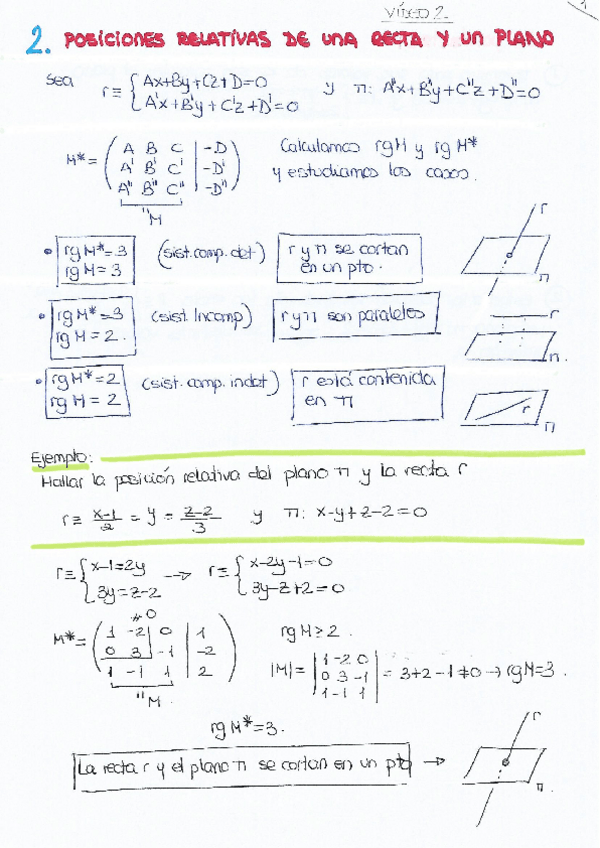 VÍDEO 2.
2. POSICIONES RELATIVAS DE UNA RECTA Y UN PLANO
Sea r≡ { Ax+By+Cz+D=0 y π: A''x+B''y+C''z+D''=0
A'x+B'y+C'z+D'=0
M*= ( A B C | -D ) Calculamos rgM y rgM*
A' B' C' | -D' y estudiamos los casos.
A'' B'' C'' | -D''
"M
• rgM*=3 (sist. comp. det) r y π se cortan
rgM=3 en un pto.
r
π
• rgM*=3 (sist. Incomp) r y π son paralelos
rgM=2.
r
π.
• rgM*=2 (sist. comp. indet) r está contenida
rgM=2 en π
r
π
Ejemplo:
Hallar la posición relativa del plano π y la recta r
r≡ x-1/2 = y = z-2/3 y π: x-y+z-2=0
r≡ { x-1=2y → r≡ { x-2y-1=0
3y=z-2 3y-z+2=0
≠0
M*= ( 1 -2 0 | 1 ) rgM≥2.
0 3 -1 | -2
1 -1 1 | 2
"M.
|M|= | 1 -2 0 | = 3+2-1≠0 → rgM=3.
0 3 -1
1 -1 1
rgM*=3.
La recta r y el plano π se cortan en un pto →
r
π